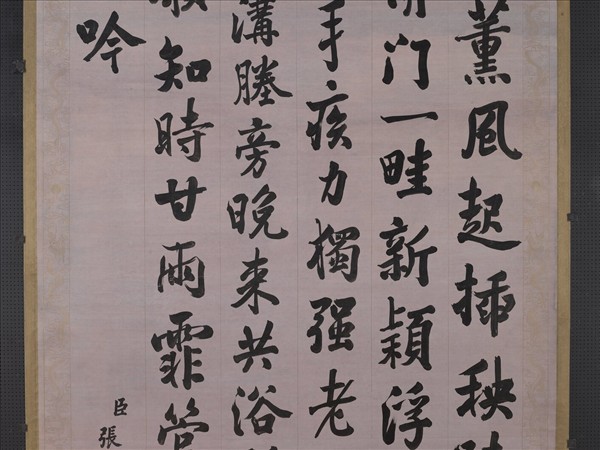 薰風起插秧
门一畦新穎浮
手疾力獨强老
溝塍旁晚来共浴
知時甘雨霏管
吟
臣張